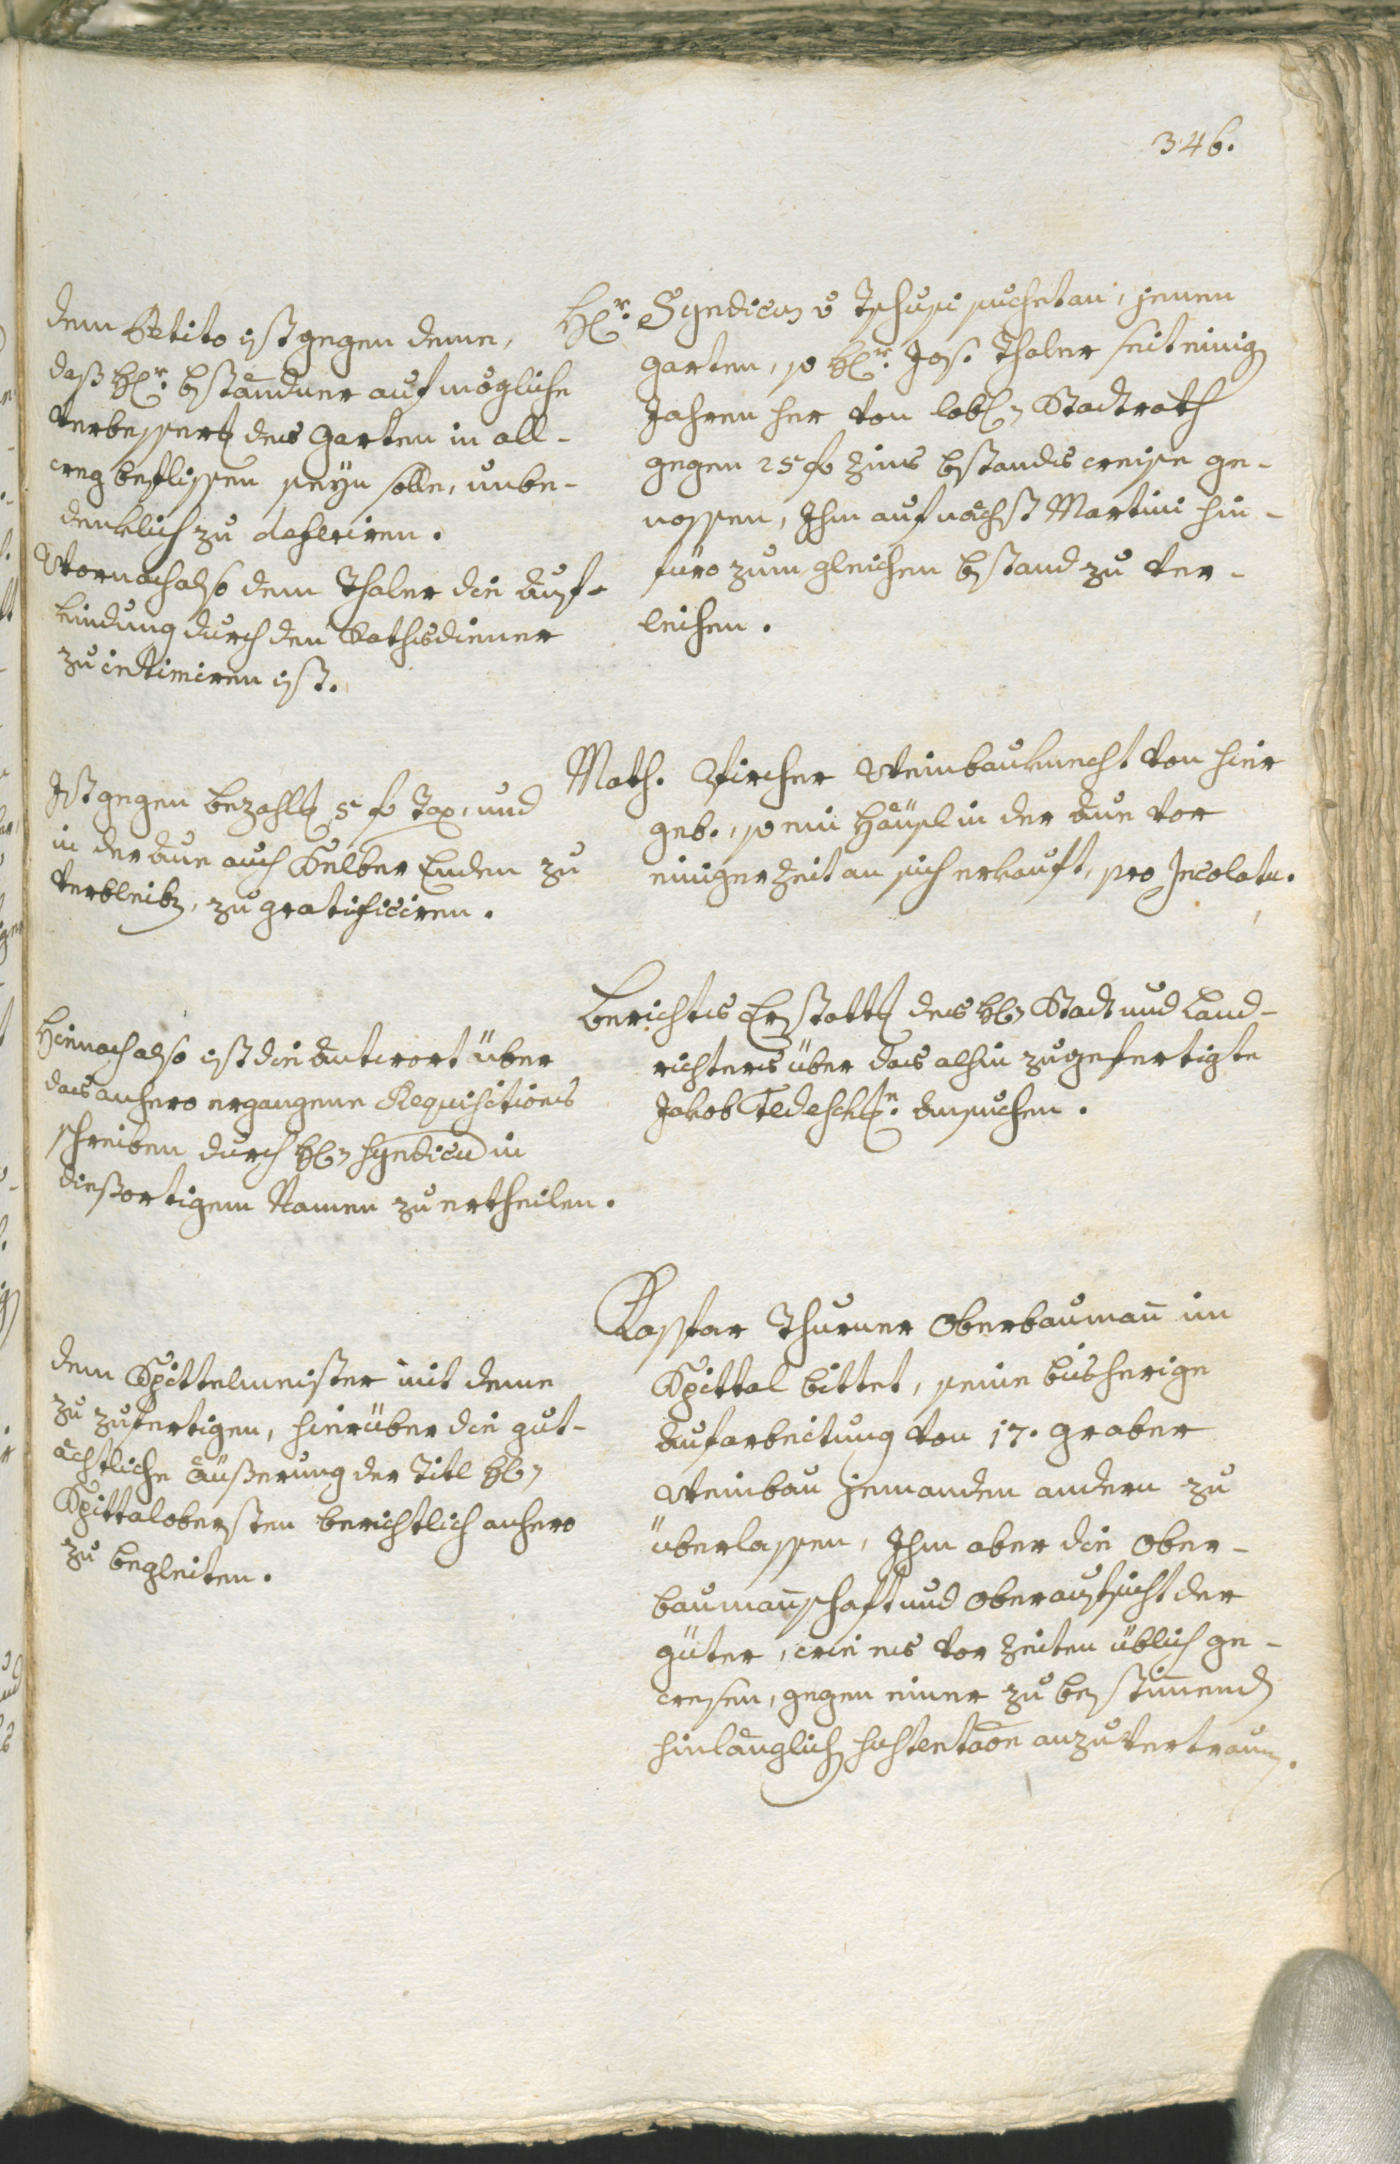 346.
Hr. Syndicus v Tschusi suchet an, jenen
garten, so Hr. Jos. Thaler seit einig
Jahren her von lobl. Stadtrath
gegen 25 f Zins bstandsweise ge-
nossen, Ihm auf nächst Martini hin-
füro zum gleichen bstand zu ver-
leihen.
dem Petito ist gegen deme,
daß Hr. bständner auf mögliche
verbesserg des Garten in all-
weg beflissen seyn solle, unbe-
denklich zu deferiren.
Wornach also dem Thaler die Auf-
kindung durch den Rathsdiener
zu intimiren ist.
Math. Pircher Weinbauknecht von hier
geb., so ein Häusl in der Aue vor
einiger Zeit an sich erkauft, pro Incolatu.
Ist gegen bezahlg 5 f Tax, und
in der Aue auch Selber Enden zu
verbleibn, zu gratificiren.
Berichts Erstattg des Hln Stadt und Land-
richters über das alhin zugefertigte
Jakob Tedeschische Ansuchen.
Hienach also ist die Antwort über
das anhero ergangene Requisitions
schreiben durch Hln Syndicu in
dießortigem Namen zu ertheilen.
Kaspar Thurner Oberbaumann im
Spittal bittet, seine bisherige
Aufarbeitung von 17. graber
Weinbau jemanden andern zu
überlassen, Ihm aber die Ober-
baumannschaft und Oberaufsicht der
güter, wie es vor Zeiten üblich ge-
wesen, gegen einer zu bestimmend
hinlänglich sustentaon anzuvertraun.
dem Spittelmeister mit deme
zu zufertigen, hierüber die gut-
ächtliche äußerung der Titl Hln
Spittalobersten berichtlich anhero
zu begleiten.